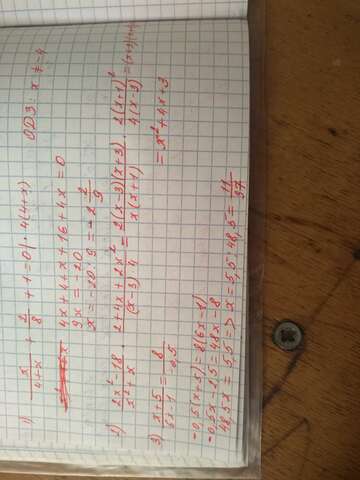 1) x/(4+x) + 2/8 + 1 = 0 | · 4(4+x)  ОДЗ: x ≠ -4
4x + 4 + x + 16 + 4x = 0
9x = -20
x = -20 : 9 = -2 2/9
2) (2x² - 18)/(x² + x) · (2 + 4x + 2x²)/((x - 3) · 4) = (2(x - 3)(x + 3))/(x(x + 1)) · (2(x + 1)²)/(4(x - 3))
= x² + 4x + 3
3) (x + 5)/(6x - 1) = 8/(-0,5)
-0,5(x + 5) = 8(6x - 1)
-0,5x - 2,5 = 48x - 8
48,5x = 5,5 -> x = 5,5 : 48,5 = 11/97